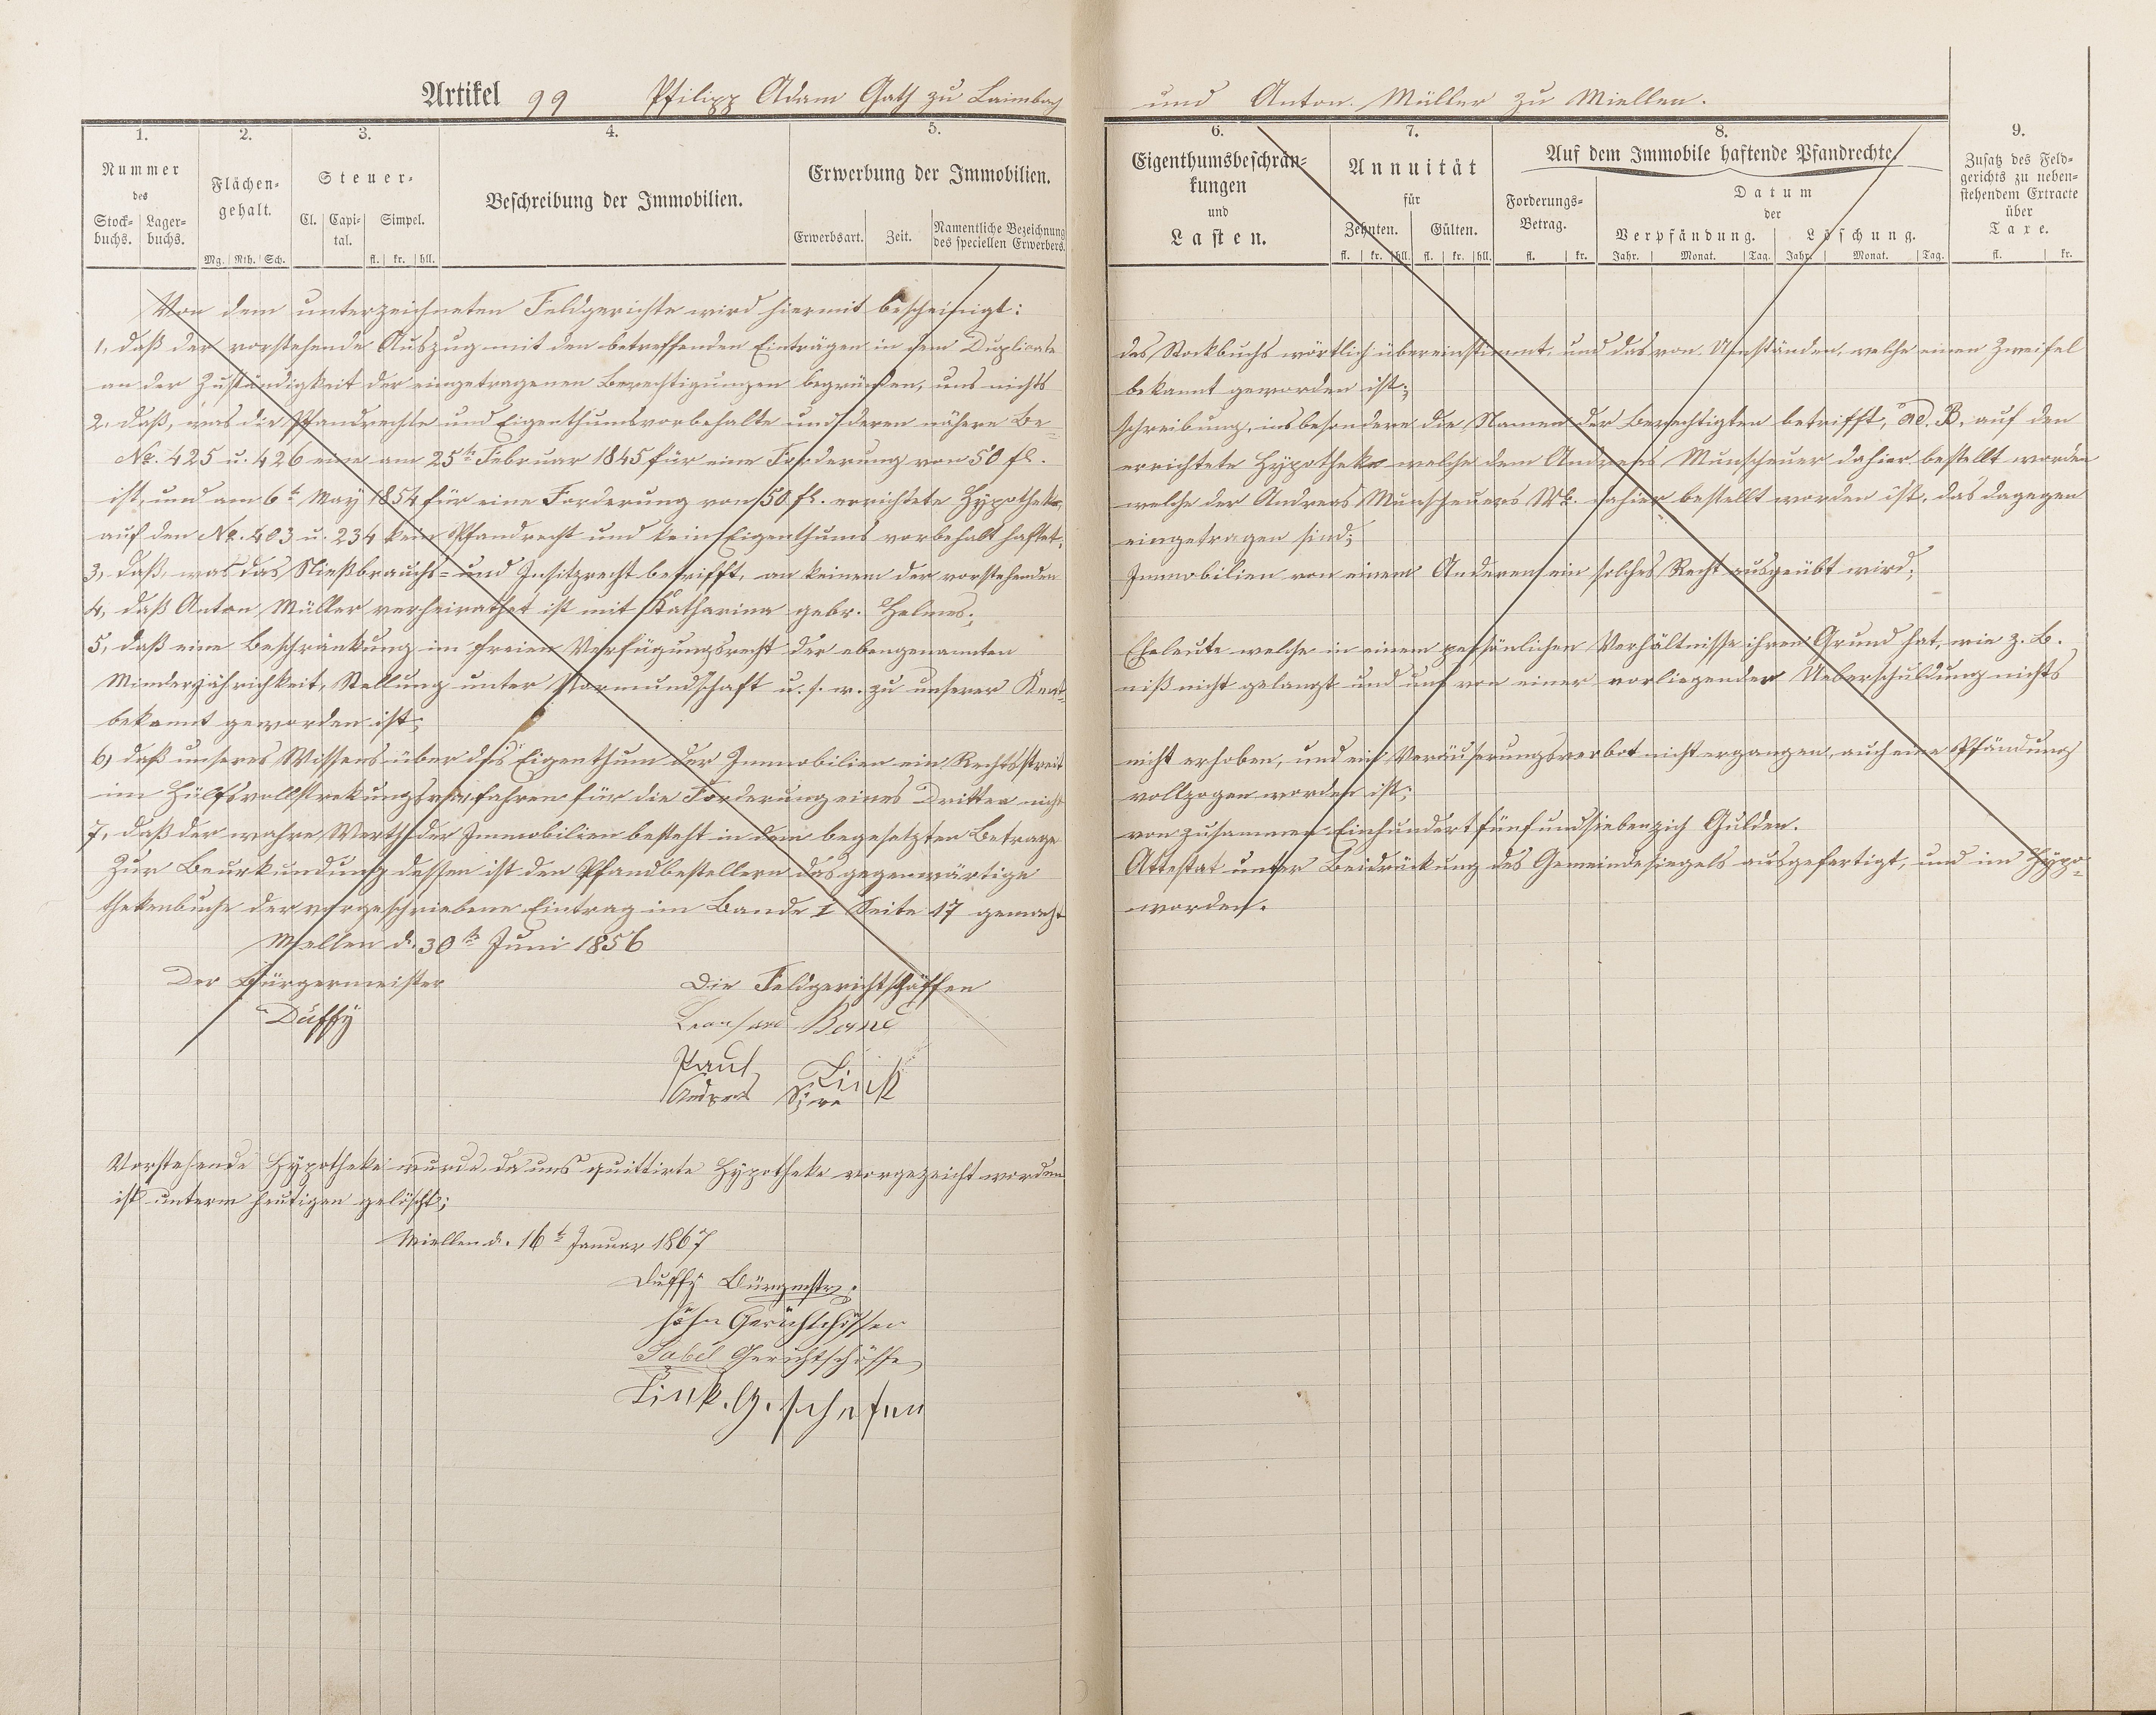 Artikel 99 Philipp Adam Gath zu Laimbach und Anton Müller zu Miellen.
1. 2. 3. 4. 5. 6. 7. 8. 9.
Nummer des
Stock-buchs. Lager-buchs.
Flächen-gehalt.
Mg. Rth. Sch.
Steuer-
Cl. Capi-tal. Simpel.
fl. kr. hll.
Beschreibung der Immobilien.
Erwerbung der Immobilien.
Erwerbsart. Zeit. Namentliche Bezeichnung des speciellen Erwerbers.
Eigenthumsbeschrän-
kungen
und
Lasten.
Annuität
für
Zehnten. Gülten.
fl. kr. hll. fl. kr. hll.
Auf dem Immobile haftende Pfandrechte.
Forderungs-
Betrag.
fl. kr.
Datum
der
Verpfändung. Löschung.
Jahr. Monat. Tag. Jahr. Monat. Tag.
Zusatz des Feld-
gerichts zu neben-
stehendem Extracte
über
Taxe.
fl. kr.
Von dem unterzeichneten Feldgerichte wird hiermit bescheinigt:
1, daß der vorstehende Auszug mit den betreffenden Einträgen in dem Duplicate des Stockbuchs wörtlich übereinstimmt, und das von Umständen, welche einen Zweifel
an der Zuständigkeit der eingetragenen Berechtigungen begründen, uns nichts bekannt geworden ist;
2, daß, was die Pfandrechte und Eigenthumsvorbehalte und deren nähere Be= schreibung, insbesondere die Namen der Berechtigten betrifft, ad. B, auf den
No. 425 u. 426 eine am 25ts Februar 1845 für eine Forderung von 50 fl. errichtete Hypotheke welche dem Andreas Munscheuer dahier bestellt worden
ist, und am 6t May 1854 für eine Forderung von 50 fl. errichtete Hypotheke, welche der Andreas Munscheuers Wb. dahier bestellt worden ist, das dagegen
auf den No. 403 u. 234 kein Pfandrecht und kein Eigenthums vorbehalt haftet, eingetragen sind;
3, daß, was das Nießbrauchs= und Insitzrecht betrifft, an keinem der vorstehenden Immobilien von einem Anderen ein solches Recht ausgeübt wird;
4, daß Anton Müller verheirathet ist mit Katharina gebr. Helmes;
5, daß eine Beschränkung im freien Verfügungsrecht der ebengenannten Eheleute welche in einem persönlichen Verhältnisse ihren Grund hat, wie z. B.
Minderjährichkeit, Stellung unter Vormundschaft u. s. w. zu unserer Kent= niß nicht gelangt und uns von einer vorliegender Ueberschuldung nichts
bekannt geworden ist;
6, daß unseres Wissens über dis Eigenthum der Immobilien ein Rechtsstreit nicht erhoben, und ein Veräuserungsverbot nicht ergangen, auch eine Pfändung
im Hülfsvollstrekungsverfahren für die Forderung eines Dritten nicht vollzogen worden ist;
7, daß der wahre Werth der Immobilien besteht in dem begesetzten Betrage von zusammen Einhundert fünfundsiebenzich Gulden.
Zur Beurkundung dessen ist den Pfandbestellern das gegenwärtige Attestat unter Beidrückung des Gemeindesiegels ausgefertigt, und im Hypo=
thekenbuche der vorgeschriebene Eintrag im Bande I Seite 17 gemacht worden.
Miellen d. 30ts Juni 1856
Der Bürgermeister Die Feldgerichtschöffen
Duffy
Paul Link
Andreas
Vorstehende Hypotheke wurde, da uns quittirte Hypotheke vorgezeicht worden
ist unterm heutigen gelöscht;
Miellen d. 16t Januar 1867
Duffy Bürgmstr.
Höhn Gerichtschöffen
Sabel Gerichtschöffe
Link. G. schefen